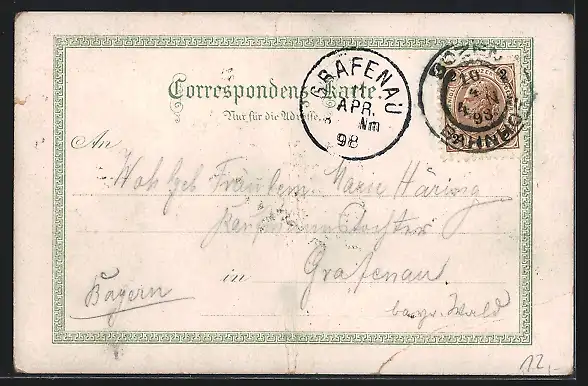 Correspondenz-Karte.
Nur für die Adresse.
GRAFENAU
APR.
Nm
98
BOZEN
BAHNHOF
An
Woh Geb Fräulein Marie Häring
Kaufmannstochter
in Grafenau
Bayern
bayr. Wald
12,-